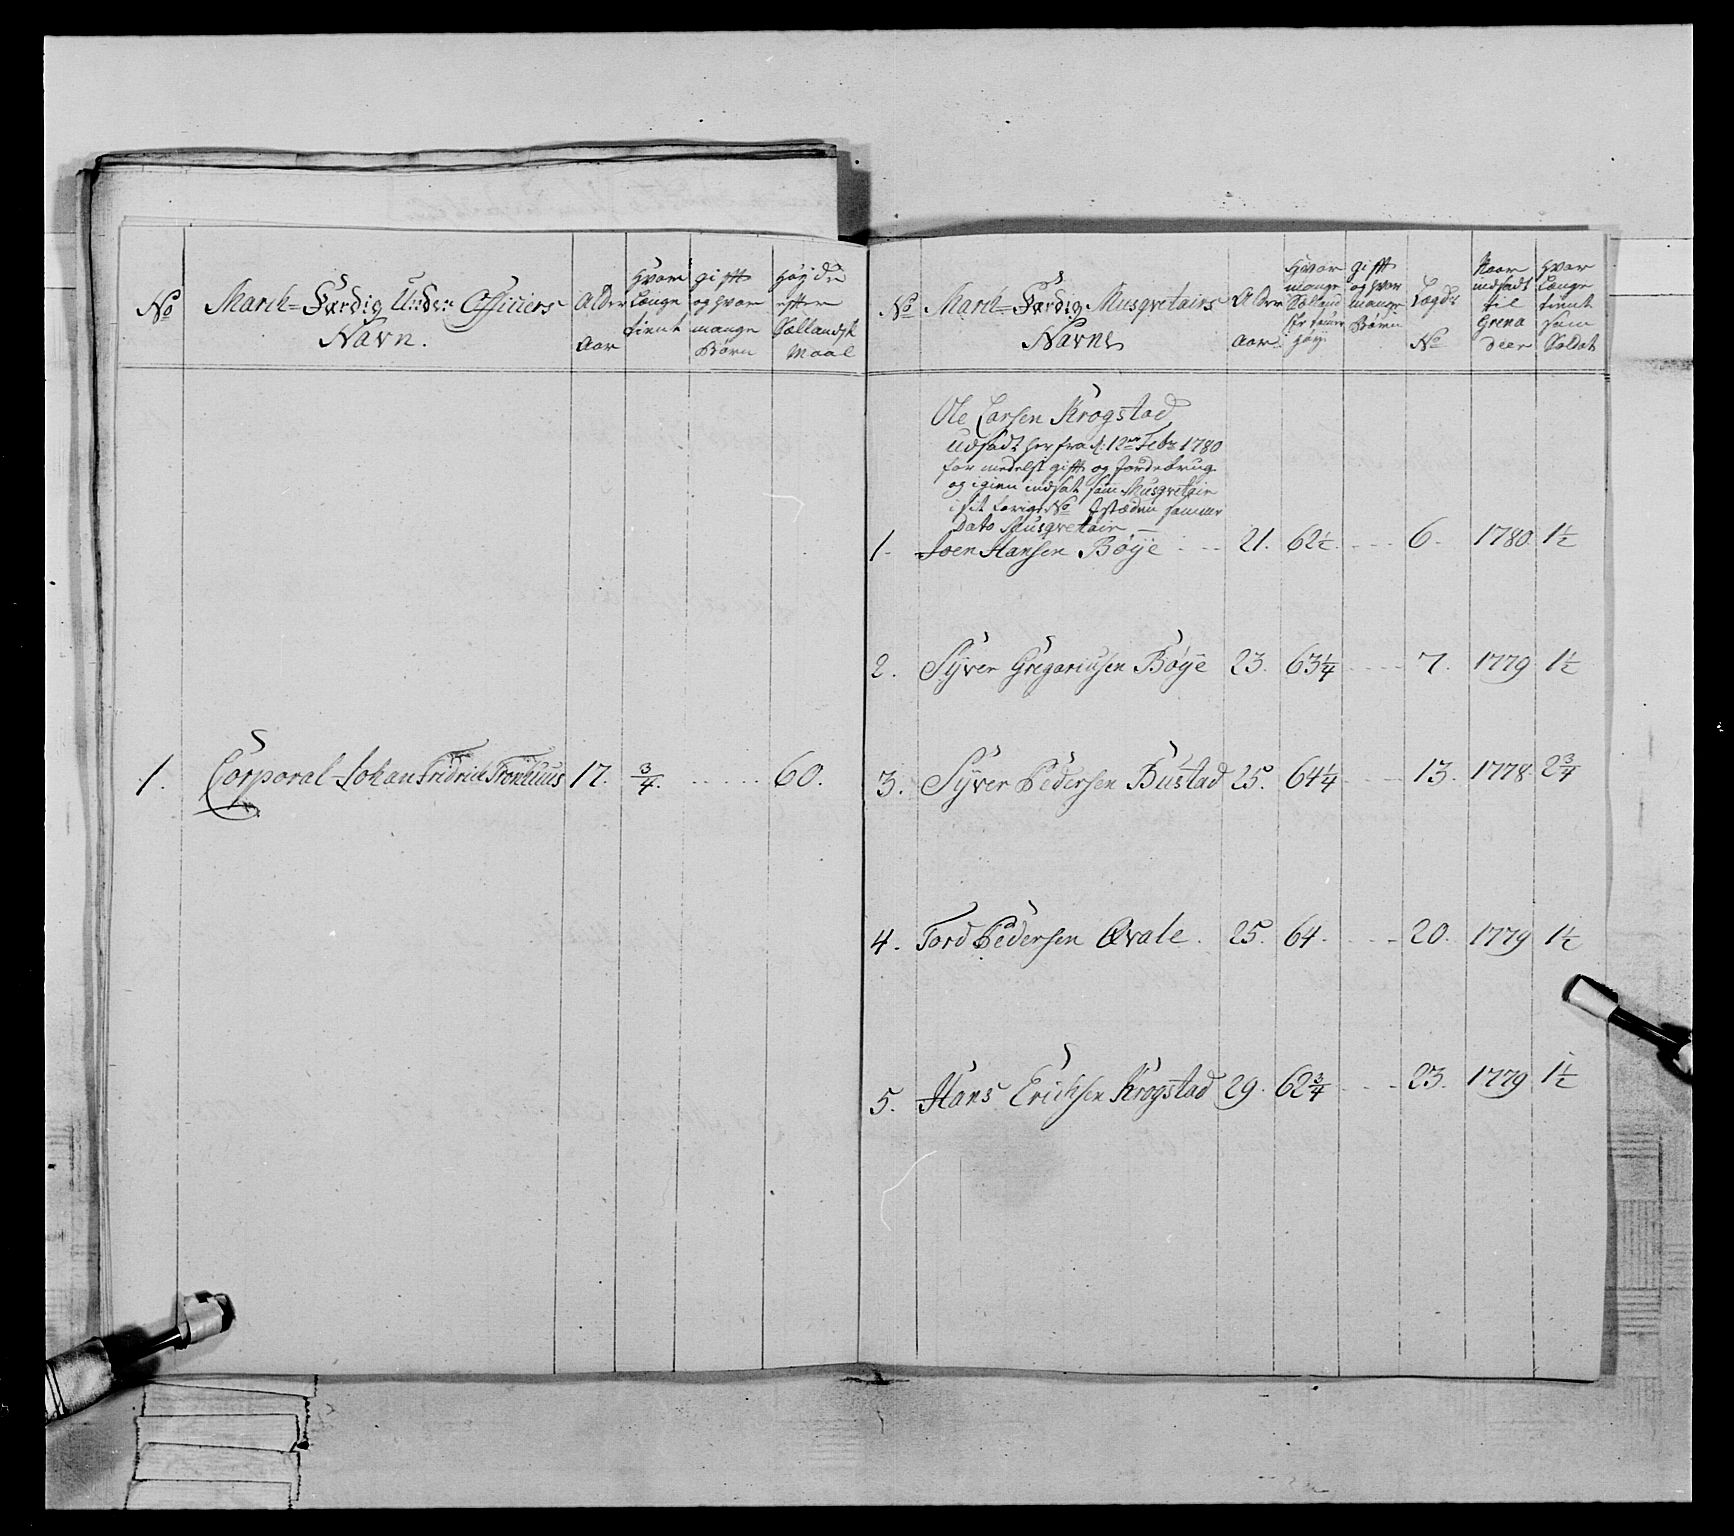 No
March-Færdig Under Officiers
Navn.
Alder
Aar
Hvor
Længe
tient
gift
og hvor
mange
Børn
Høyde
efter
Sællandsk
Maal
1. Corporal Johan Fridrich Tronhuus 17. 3/4. 60.
No
March-Færdig Musqvetairs
Navne
Alder
Aar
Hvor
mange
Sælland
høy
gift
og hvor
mange
Børn
Lægds
No
Naar
indsadt
til
Grena
deer
Hvor
Længe
tient
som
Soldat
Ole Larsen Krogstad
udsadt herfra d: 12te Febr 1780
formedelst gift og Jordebrug
og igien indsat som Musqvetair
i sit forige No Istæden samme
Dato Musqvetair
1. Joen Hansen Bøÿe 21. 62 1/2. 6. 1780. 1 1/2
2. Sÿver Gregariusen Bøÿe 23. 63 1/4 7. 1779 1 1/2
3. Sÿver Pedersen Bustad 25. 64 1/4 13. 1778. 2 3/4
4. Tord Pedersen Qvale. 25. 64. 20. 1779 1 1/2
5. Hans Erichsen Krogstad 29. 62 3/4 23. 1779 1 1/2